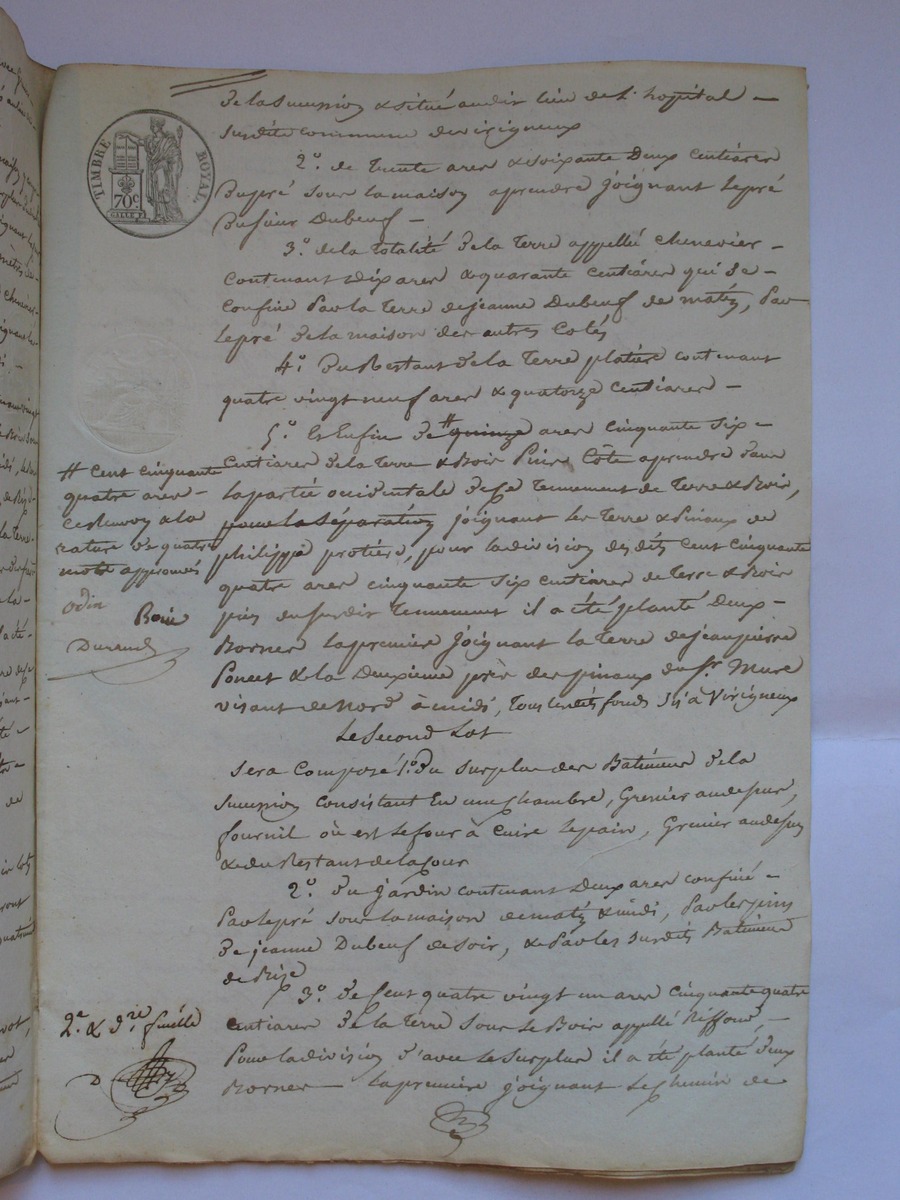 de la succession & situé audit lieu de l'hopital —
susdite commune de virigneux
TIMBRE ROYAL
70c.
2o. de trente ares & soixante deux centiares
du pré sous la maison aprendre joignant le pré
du sieur Dubeuf —
3o. de la totalité de la terre appellée chenevier —
contenant dix ares & quarante centiares qui se —
confine par la terre de jeanne Dubeuf de matin, par
le pré de la maison des autres cotés
4o. du restant de la terre platière contenant
quatre vingt neuf ares & quatorze centiares —
5o. Et Enfin de # quinze ares cinquante six —
centiares de la terre & Bois pins Côte aprendre dans
la partie occidentale de ce tennement de terre & Bois,
pour la séparation joignant les terre & pinaux de
philippe protière, pour la division desdits cent cinquante
quatre ares cinquante six centiares de terre & Bois
pins dususdit tennement il a été planté deux —
Bornes la première joignant la terre de jean pierre
Poncet & la deuxieme près des pinaux du sr. Mure
visant de nord à midi, tous lesdits fonds sis à Virigneux
Le Second Lot
sera composé 1o. du surplus des Batimens de la
succession consistant En une chambre, Grenier audessus,
fournil où est le four à cuire le pain, Grenier audessus
& du Restant de la Cour
2o. du jardin contenant deux ares confiné —
par le pré sous la maison de matin & midi, par les pins
de jeanne Dubeuf de soir, & par les susdits Batimens
de Bise
3o. de cent quatre vingt un ares cinquante quatre
centiares de la terre sous le Bois appellé Riffour, —
pour la division d'avec le surplus il a été planté deux
Bornes — la première joignant le chemin de
# cent cinquante
quatre ares —
ce renvoy & la
rature de quatre
mots approuvés
odin
Durand
2e. & 3me feuille